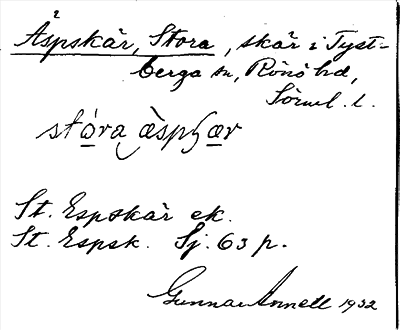 Äspskär, Stora, skär i Tyst-
berga sn, Rönö hd,
Sörml. l.
stóra äspʃär
St. Espskär ek.
St. Espsk. Sj. 63 p.
Gunnar Annell 1932